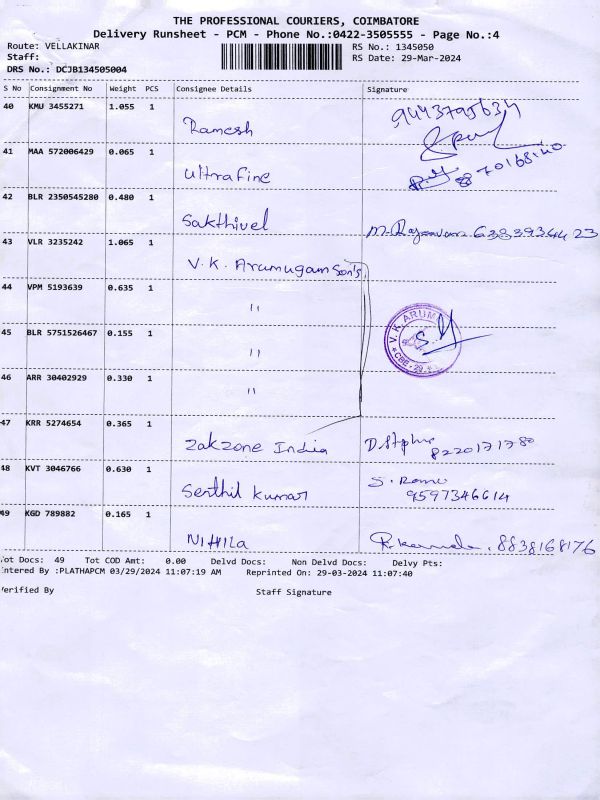 THE PROFESSIONAL COURIERS, COIMBATORE
Delivery Runsheet - PCM - Phone No.:0422-3505555 - Page No.:4
Route: VELLAKINAR RS No.: 1345050
Staff: RS Date: 29-Mar-2024
DRS No.: DCJB134505004
S No Consignment No Weight PCS Consignee Details Signature
40 KMU 3455271 1.055 1 Ramesh
41 MAA 572006429 0.065 1 Ultrafine 8870168140
42 BLR 2350545280 0.480 1 Sakthivel
43 VLR 3235242 1.065 1 V.K. Arumugam Son's
44 VPM 5193639 0.635 1 "
45 BLR 5751526467 0.155 1 "
46 ARR 30402929 0.330 1 "
V.K. ARUM
CBE-29
47 KRR 5274654 0.365 1 Zakzone India 8220171780
48 KVT 3046766 0.630 1 Senthil Kumar S. Ramu
9597346614
49 KGD 789882 0.165 1 Nithila 8838168176
ot Docs: 49 Tot COD Amt: 0.00 Delvd Docs: Non Delvd Docs: Delvy Pts:
ntered By :PLATHAPCM 03/29/2024 11:07:19 AM Reprinted On: 29-03-2024 11:07:40
erified By Staff Signature